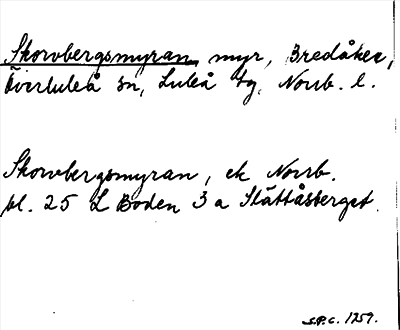 Skorvbergsmyran, myr, Bredåker,
Överluleå sn, Luleå tg, Norrb. l.
Skorvbergsmyran, ek Norrb.
bl. 25 L Boden 3 a Slättåsberget.
S.P.C. 1959.